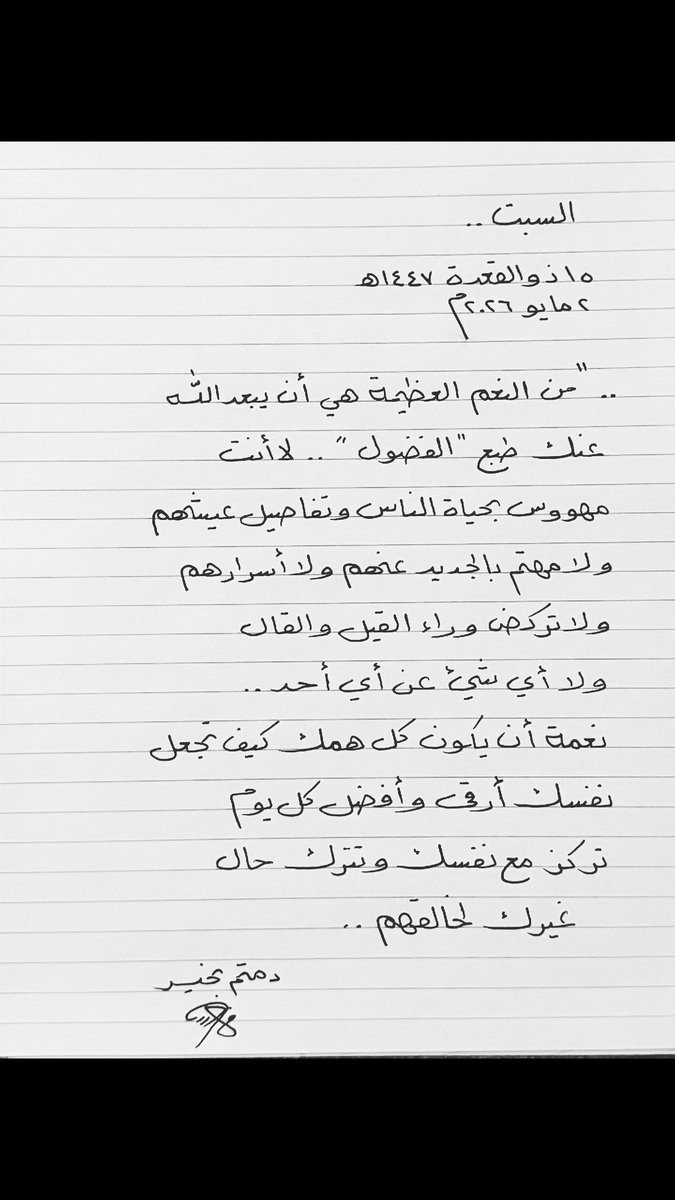 السبت ..
١٥ ذو القعدة ١٤٤٧هـ
٢ مايو ٢٠٢٦م
.. "من النعم العظيمة هي أن يبعد الله
عنك طبع "الفضول" .. لا أنت
مهووس بحياة الناس وتفاصيل عيشهم
ولا مهتم بالجديد عنهم ولا أسرارهم
ولا تركض وراء القيل والقال
ولا أي شيئ عن أي أحد ..
نعمة أن يكون كل همك كيف تجعل
نفسك أرقى وأفضل كل يوم
تركز مع نفسك وتترك حال
غيرك لخالقهم ..
دمتم بخير